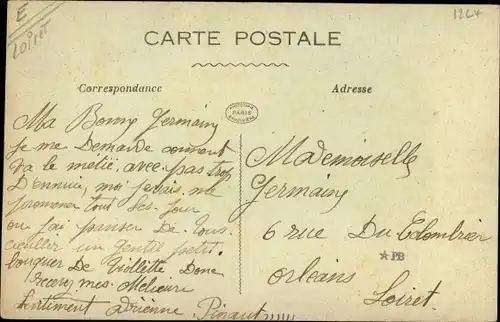 E
Loiret
CARTE POSTALE
Correspondance
Adresse
PARIS
Ma Bonny Germain
je me Demande comment
va le métie. avec pas trop
D'ennuie, moi je vais me
promener tout les jour
ou j'ai panser De vous
cueillir un gentil petit
bouquer De Violette Donc
recever mes Melieure
Sentiment Adrienne Pinault
Mademoiselle
Germain
6 rue Du Colombier
PB
Orleans
Loiret.